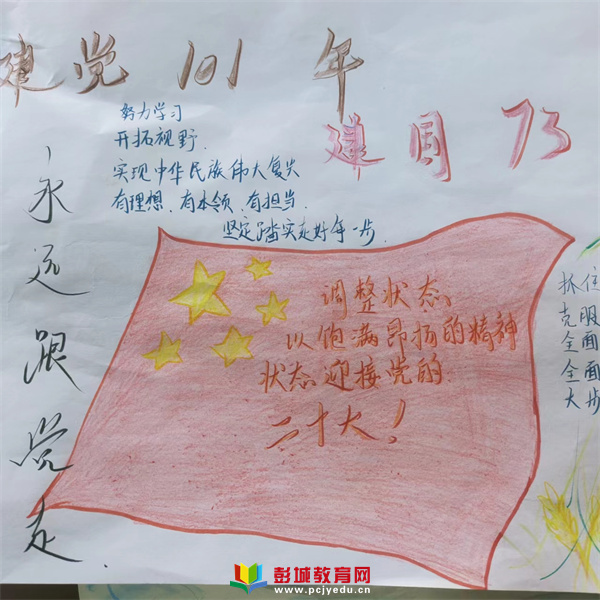 建党 101 年
建国 73
努力学习
开拓视野.
实现中华民族伟大复兴
有理想、有本领、有担当.
坚定踏实走好每一步.
永远跟党走.
调整状态
以饱满昂扬的精神
状态迎接党的:
二十大!
抓住
克服
全面
全面
大步
彭城教育网
www.pcjyedu.cn